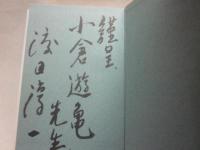 謹呈
小倉遊亀
先生
渡日淳一